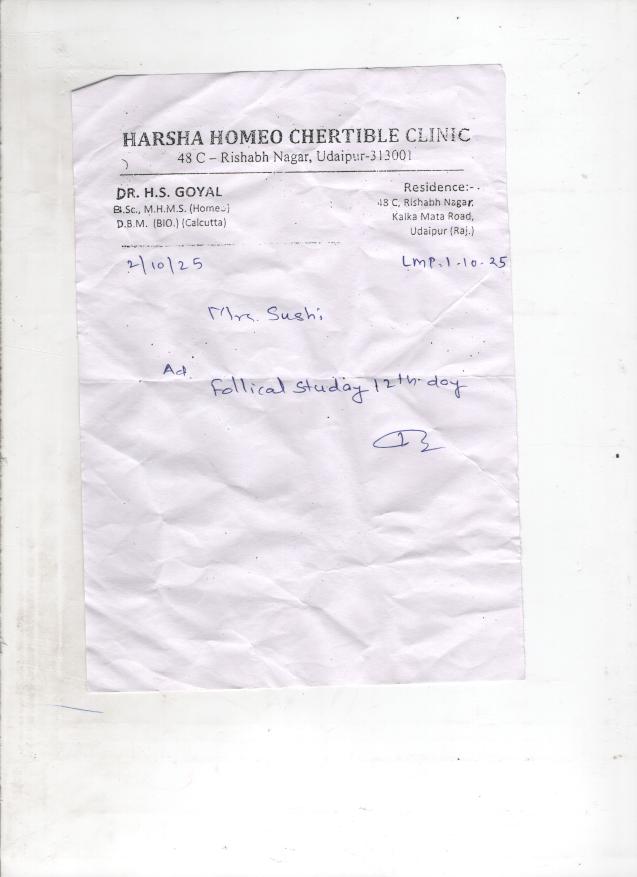 HARSHA HOMEO CHERTIBLE CLINIC
48 C – Rishabh Nagar, Udaipur-313001
DR. H.S. GOYAL
B.Sc., M.H.M.S. (Homeo)
D.B.M. (BIO.) (Calcutta)
Residence:-
48 C, Rishabh Nagar,
Kalka Mata Road,
Udaipur (Raj.)
2/10/25
LMP. 1.10.25
Mrs. Sushi
Ad.
Follical Studay 12th day